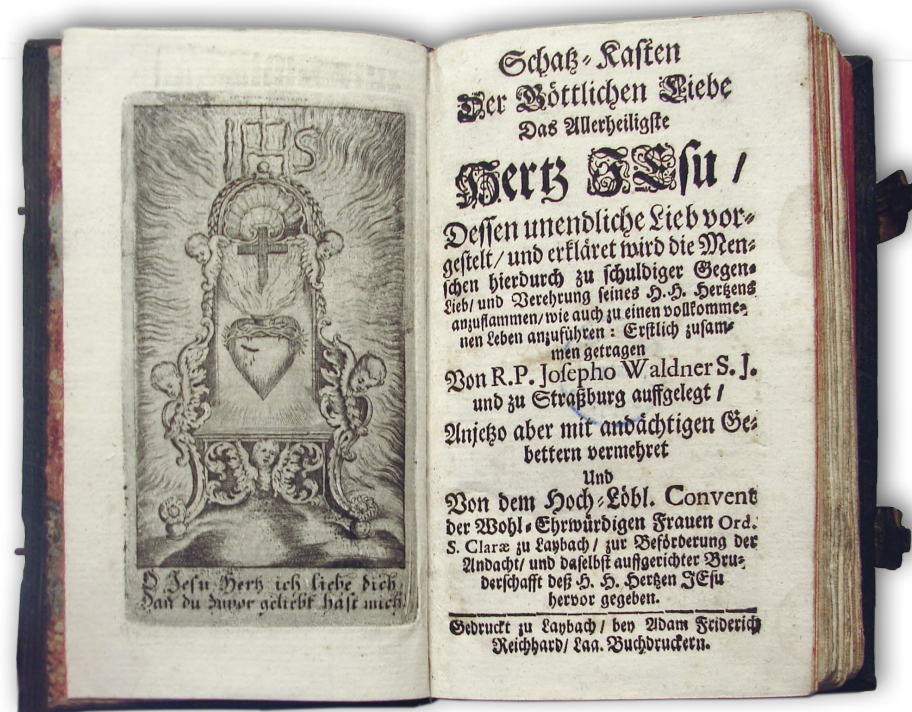 IHS
O Jesu Hertz ich liebe dich,
Dan du zuvor geliebt hast mich.
Schatz-Kasten
Der Göttlichen Liebe
Das Allerheiligste
Hertz JEsu /
Dessen unendliche Lieb vor-
gestelt / und erkläret wird die Men-
schen hierdurch zu schuldiger Gegen-
Lieb / und Verehrung seines H. H. Hertzens
anzuflammen / wie auch zu einen vollkomme-
nen Leben anzuführen : Erstlich zusam-
men getragen
Von R. P. Josepho Waldner S. J.
und zu Straßburg auffgelegt /
Anjetzo aber mit andächtigen Ge-
bettern vermehret
Und
Von dem Hoch-Löbl. Convent
der Wohl-Ehrwürdigen Frauen Ord.
S. Claræ zu Laybach / zur Beförderung der
Andacht / und daselbst auffgerichter Bru-
derschafft deß H. H. Hertzen JEsu
hervor gegeben.
Gedruckt zu Laybach / bey Adam Friderich
Reichhard / Laa. Buchdruckern.